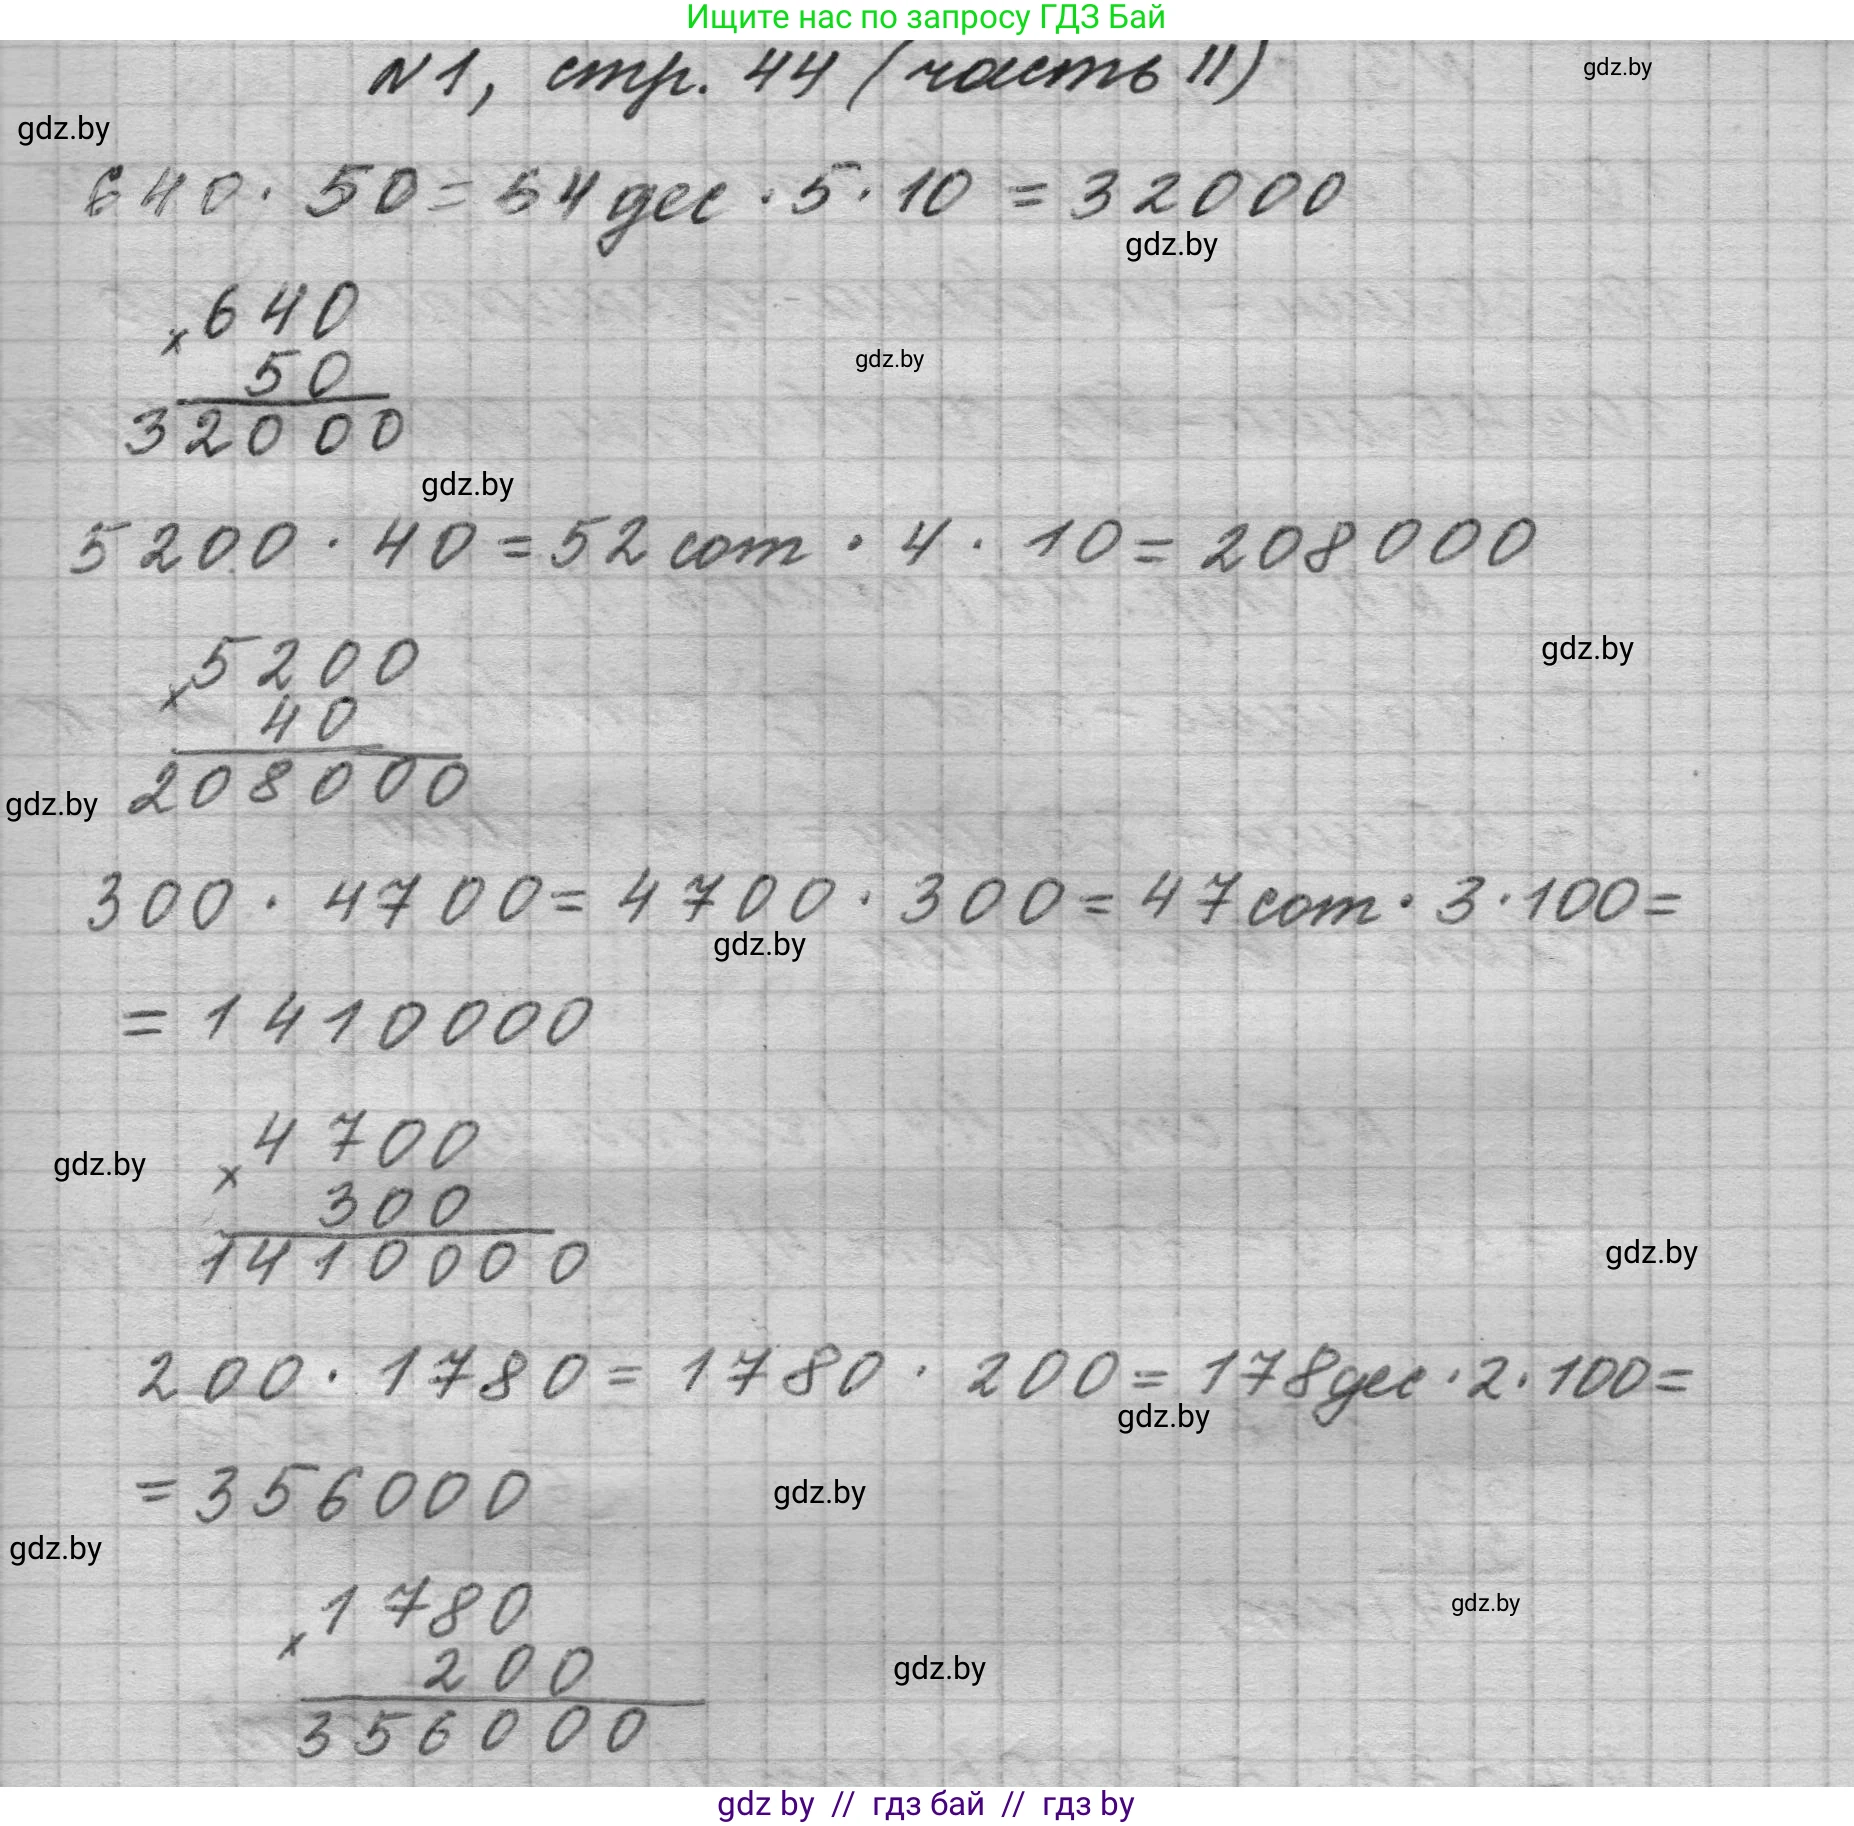 Ищите нас по запросу ГДЗ Бай
N1, стр. 44 (часть II)
gdz.by
gdz.by
640 · 50 = 54 дес · 5 · 10 = 32000
gdz.by
× 640
50
32000
gdz.by
gdz.by
5200 · 40 = 52 сот · 4 · 10 = 208000
gdz.by
× 5200
40
208000
gdz.by
300 · 4700 = 4700 · 300 = 47 сот · 3 · 100 =
gdz.by
= 1410000
× 4700
gdz.by
300
1410000
gdz.by
200 · 1780 = 1780 · 200 = 178 дес · 2 · 100 =
gdz.by
= 356000
gdz.by
gdz.by
× 1780
gdz.by
200
gdz.by
356000
gdz by // гдз бай // гдз by